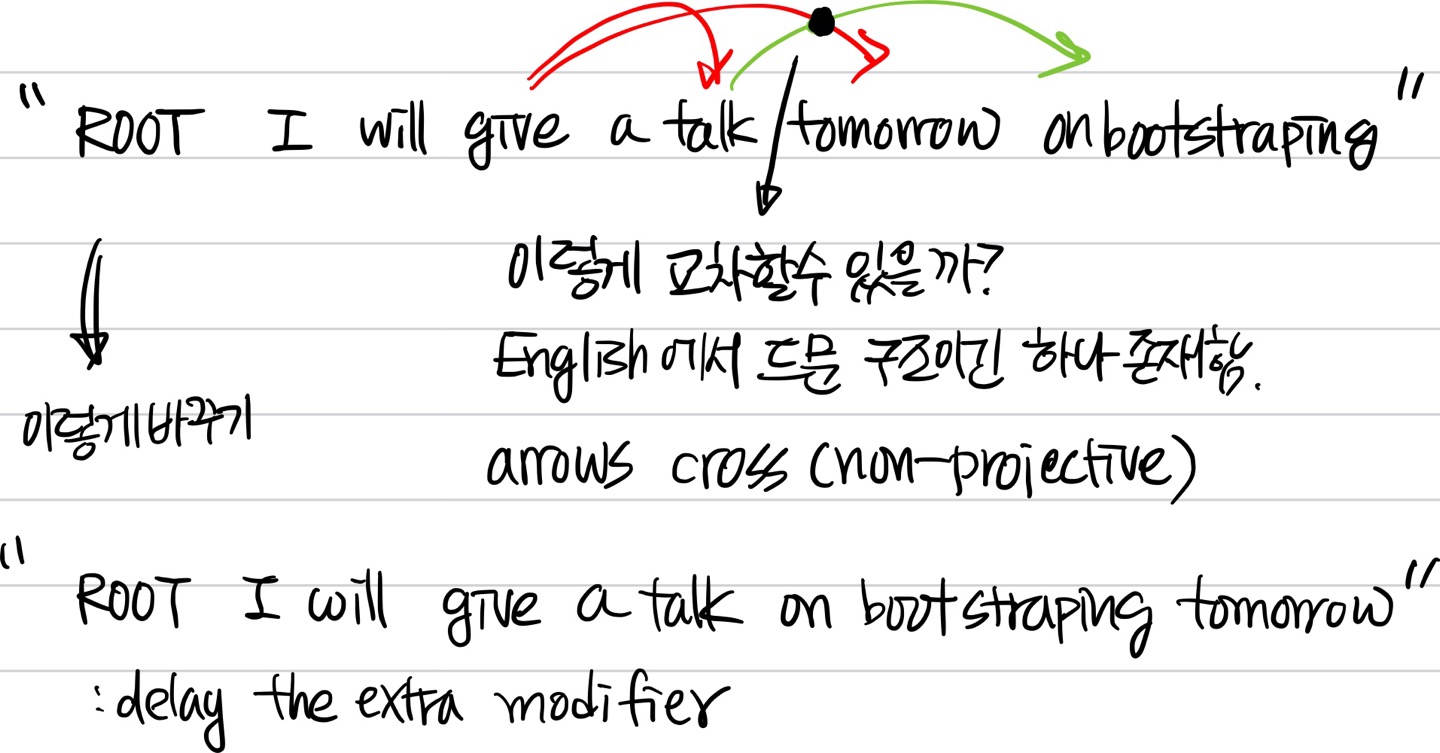 " ROOT I will give a talk tomorrow on bootstraping "
이렇게 교차할수 있을까?
English에서 드문 구조이긴 하나 존재함.
이렇게바꾸기
arrows cross (non-projective)
" ROOT I will give a talk on bootstraping tomorrow "
: delay the extra modifier